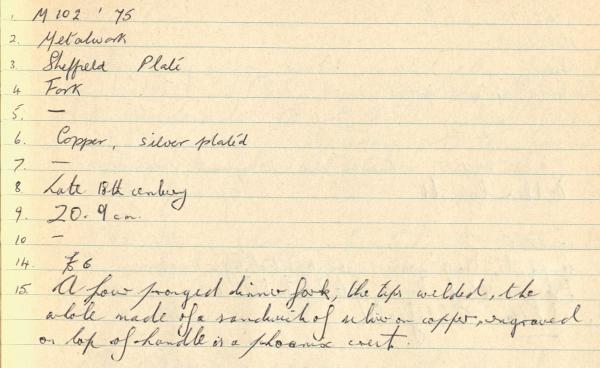 1. M 102 ' 75
2. Metalwork
3. Sheffield Plate
4 Fork
5. —
6. Copper, silver plated
7. —
8 Late 18th century
9. 20.9 cm.
10 —
14. £6
15. A four pronged dinner fork, the tips welded, the
whole made of a sandwich of silver on copper, engraved
on top of handle is a phoenix crest.